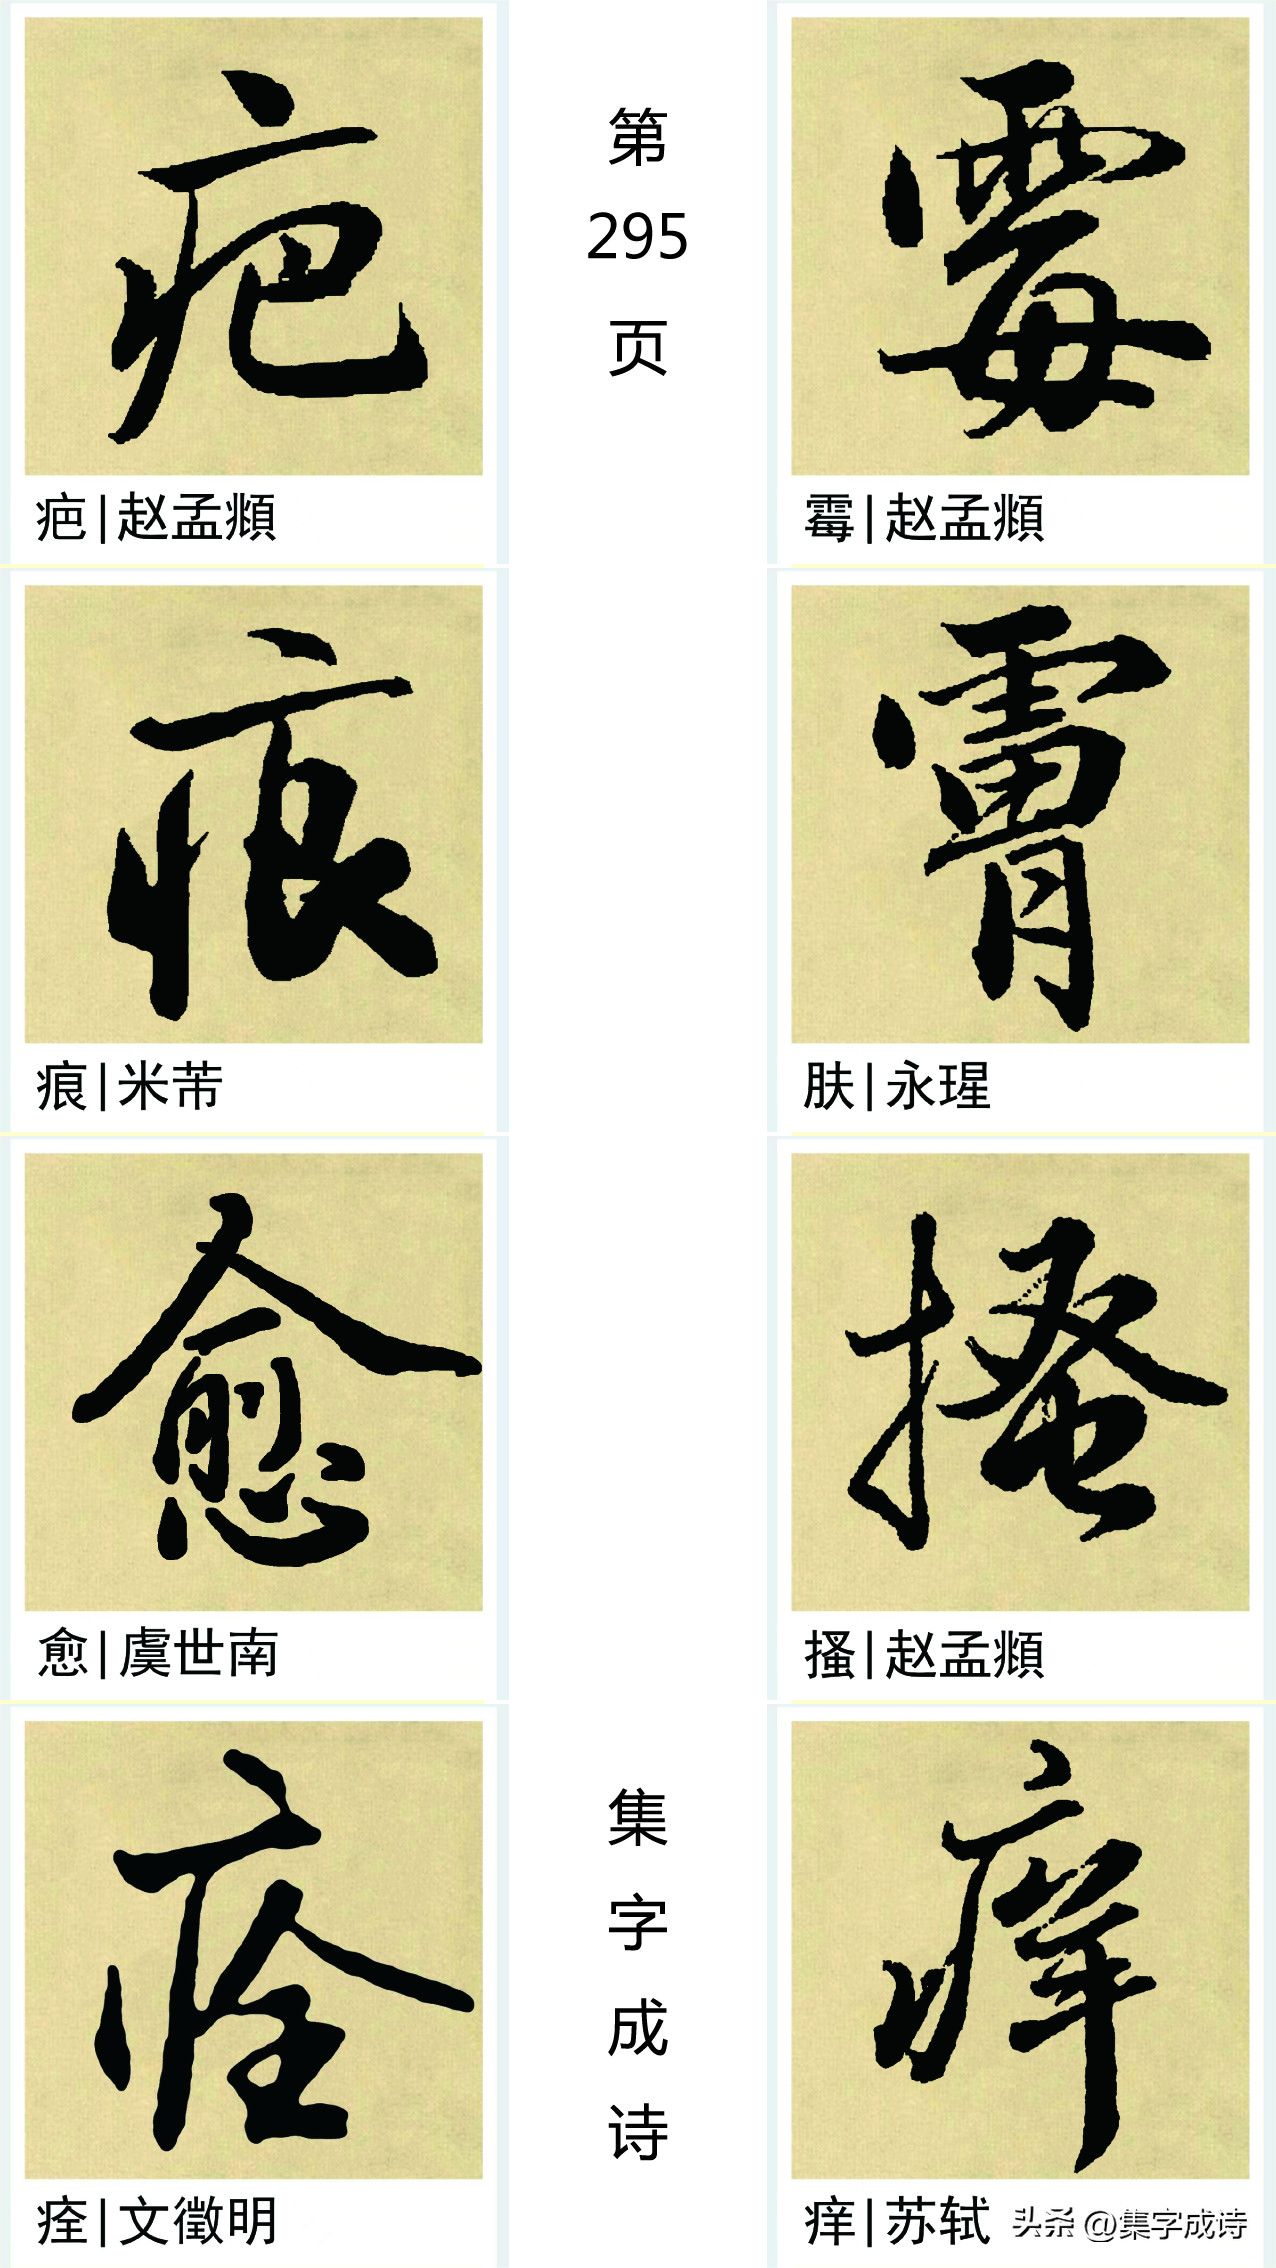 疤
疤|赵孟頫
第
295
页
霉
霉|赵孟頫
痕
痕|米芾
膚
肤|永瑆
愈
愈|虞世南
搔
搔|赵孟頫
痊
痊|文徵明
集
字
成
诗
痒
痒|苏轼
头条 @集字成诗